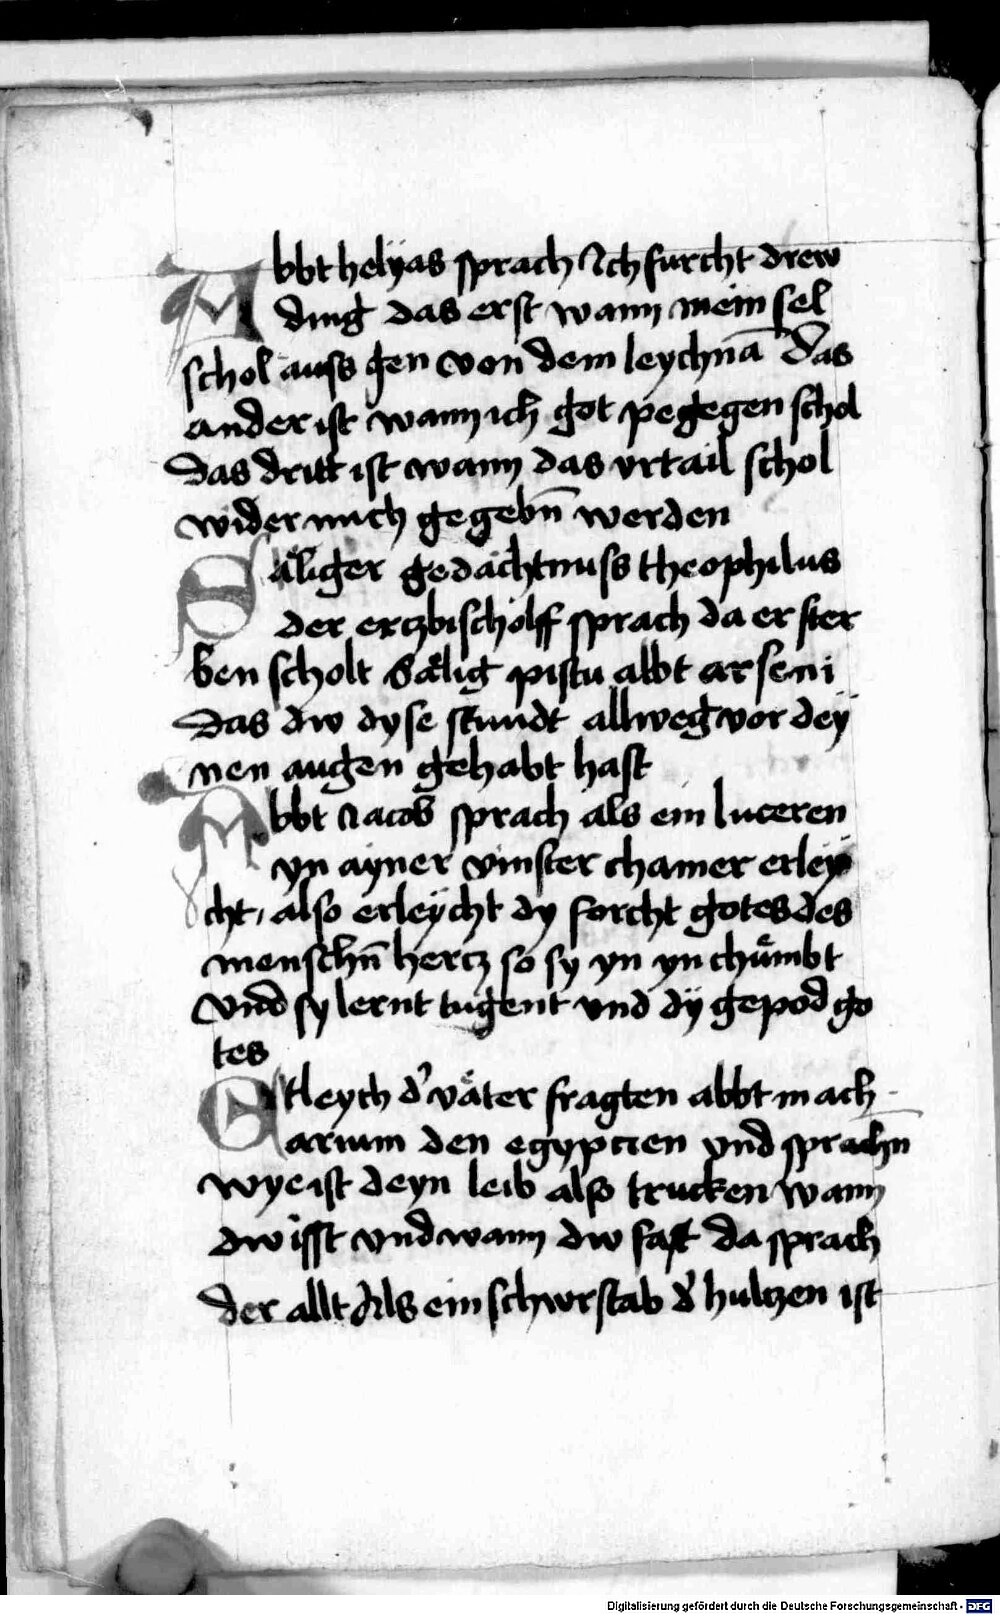 Abbt helÿas sprach Ich furcht drew
ding das erst wann mein sel
schol auss gen von dem leychnā das
ander ist wann ich got pegegen schol
das dritt ist wann das vrtail schol
wider mich gegebn̄ werden
Säliger gedächtnuss theophilus
der erczbischolff sprach da er ster
ben scholt Sälig pistu abbt arseni
das dw dyse stundt allweg vor deÿ
nen augen gehabt hast
Abbt Jacob sprach als ein luceren
yn ayner vinster chamer erleÿ
cht, also erleÿcht dy forcht gotes des
menschn̄ hercz so sy yn yn chůmbt
vnd sy lernt tugent vnd dÿ gepod go
tes
Etleych d' väter fragten abbt mach
arium den egypcien vnd sprachn̄
wye ist deyn leib also trucken wann
dw isst vnd wann dw fast da sprach
der allt Als ein schwrstab d' hulczen ist
Digitalisierung gefördert durch die Deutsche Forschungsgemeinschaft - DFG